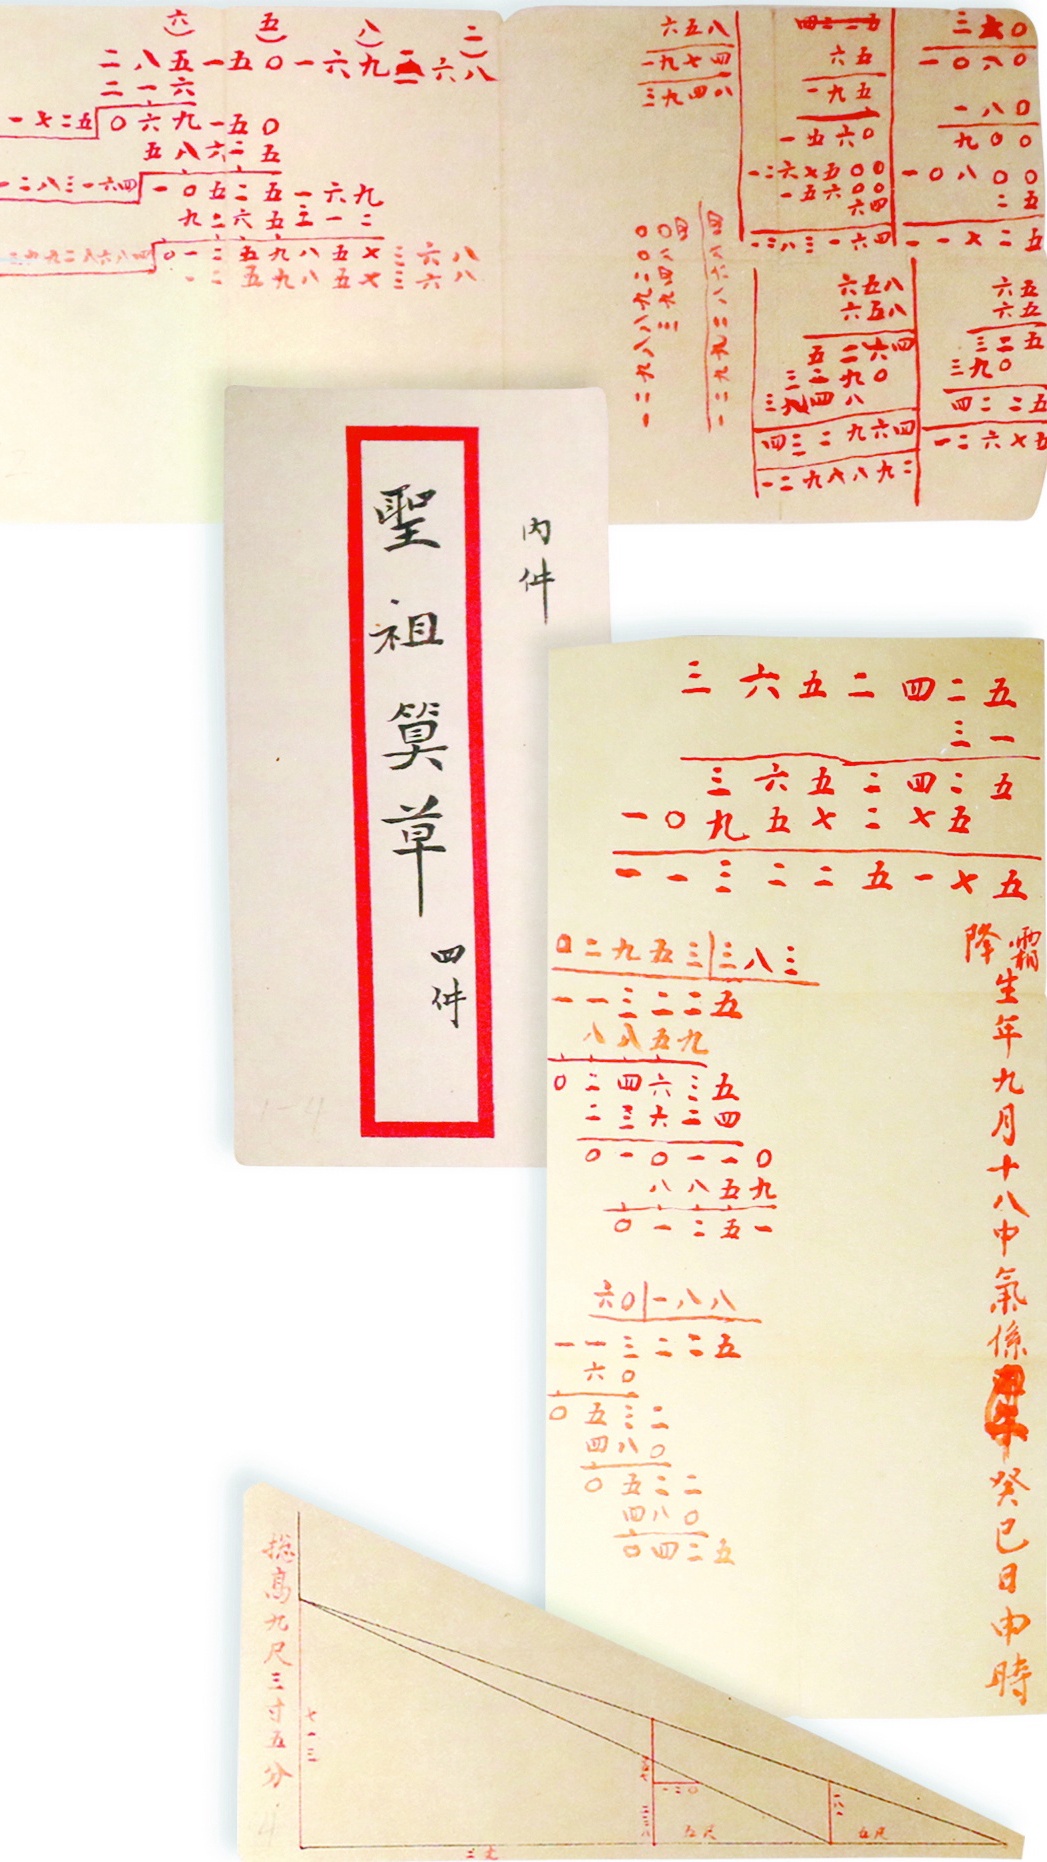 六 五 八 二
二八五一五〇一六九三六八
二一六
一七二五 〇六九一五〇
五八六二五
一二八三一六四 一〇五二五一六九
九二六五三一二
〇一二五九八五七三六八
一二五九八五七三六八
六五八
一九七四
三九四八
六五
一九五
一五六〇
一二六七五〇〇
一五六〇〇
六四
一二八三一六四
一〇八〇
一八〇
九〇〇
一〇八〇〇
二五
一一七二五
六五八
六五八
五二六四
三二九〇
三九四八
四三二九六四
一二九八八九二
六五
六五
三二五
三九〇
四二二五
一二六七五
內件
聖祖算草
四件
三六五二四二五
三一
三六五二四二五
一〇九五七二七五
一一三二二五一七五
二九五三 三八三
一一三二二五
八八五九
〇二四六三五
二三六二四
〇一〇一一〇
八八五九
〇一二五一
六〇 一八八
一一三二二五
六〇
〇五三二
四八〇
〇五二二
四八〇
〇四二五
霜降
生年九月十八中氣係
癸巳日申時
總高九尺三寸五分
七一三
二丈
五尺
五尺